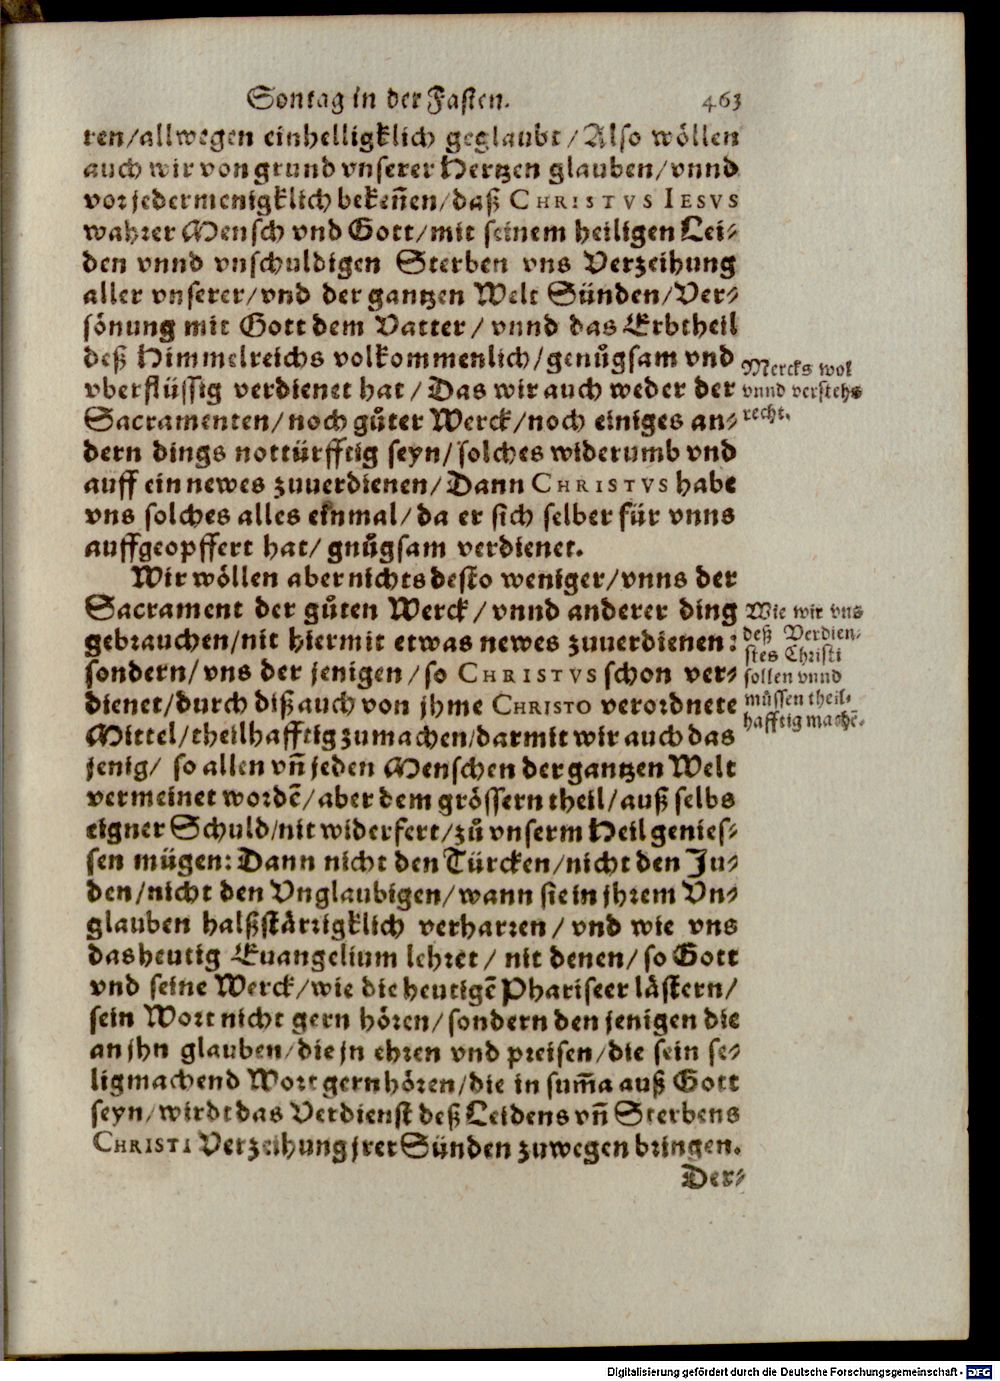 Sontag in der Fasten. 463
ren/allwegen einhelligklich geglaubt/Also wöllen
auch wir von grund vnserer Hertzen glauben/vnnd
vor jedermenigklich bekeñen/daß CHRISTVS IESVS
wahrer Mensch vnd Gott/mit seinem heiligen Lei-
den vnnd vnschuldigen Sterben vns Verzeihung
aller vnserer/vnd der gantzen Welt Sünden/Ver-
sönung mit Gott dem Vatter/vnnd das Erbtheil
deß Himmelreichs volkommenlich/genůgsam vnd
vberflüssig verdienet hat/Das wir auch weder der
Sacramenten/noch gůter Werck/noch einiges an-
dern dings nottürfftig seyn/solches widerumb vnd
auff ein newes zuuerdienen/Dann CHRISTVS habe
vns solches alles einmal/da er sich selber für vnns
auffgeopffert hat/gnůgsam verdienet.
Mercks wol
vnnd verstehs
recht.
Wir wöllen aber nichts desto weniger/vnns der
Sacrament der gůten Werck/vnnd anderer ding
gebrauchen/nit hiermit etwas newes zuuerdienen:
sondern/vns der jenigen/so CHRISTVS schon ver-
dienet/durch diß auch von jhme CHRISTO verordnete
Mittel/theilhafftig zumachen/darmit wir auch das
jenig/so allen vñ jeden Menschen der gantzen Welt
vermeinet wordẽ/aber dem grössern theil/auß selbs
eigner Schuld/nit widerfert/zů vnserm Heil genies-
sen mügen: Dann nicht den Türcken/nicht den Ju-
den/nicht den Vnglaubigen/wann sie in jhrem Vn-
glauben halßstärrigklich verharren/vnd wie vns
das heutig Euangelium lehret/nit denen/so Gott
vnd seine Werck/wie die heutigẽ Phariseer lästern/
sein Wort nicht gern hören/sondern den jenigen die
an jhn glauben/die jn ehren vnd preisen/die sein se-
ligmachend Wort gern hören/die in sum̃a auß Gott
seyn/wirdt das Verdienst deß Leidens vñ Sterbens
CHRISTI Verzeihung jrer Sünden zuwegen bringen.
Wie wir vns
deß Verdien-
stes Christi
sollen vnnd
müssen theil-
hafftig machẽ.
Der-
Digitalisierung gefördert durch die Deutsche Forschungsgemeinschaft - DFG